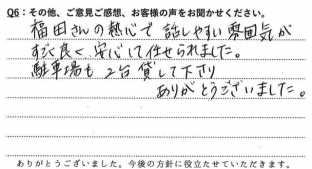 Q6：その他、ご意見ご感想、お客様の声をお聞かせください。
福田さんの熱心で話しやすい雰囲気が
すごく良く安心して任せられました。
駐車場も2台貸して下さり
ありがとうございました。
ありがとうございました。今後の方針に役立たせていただきます。